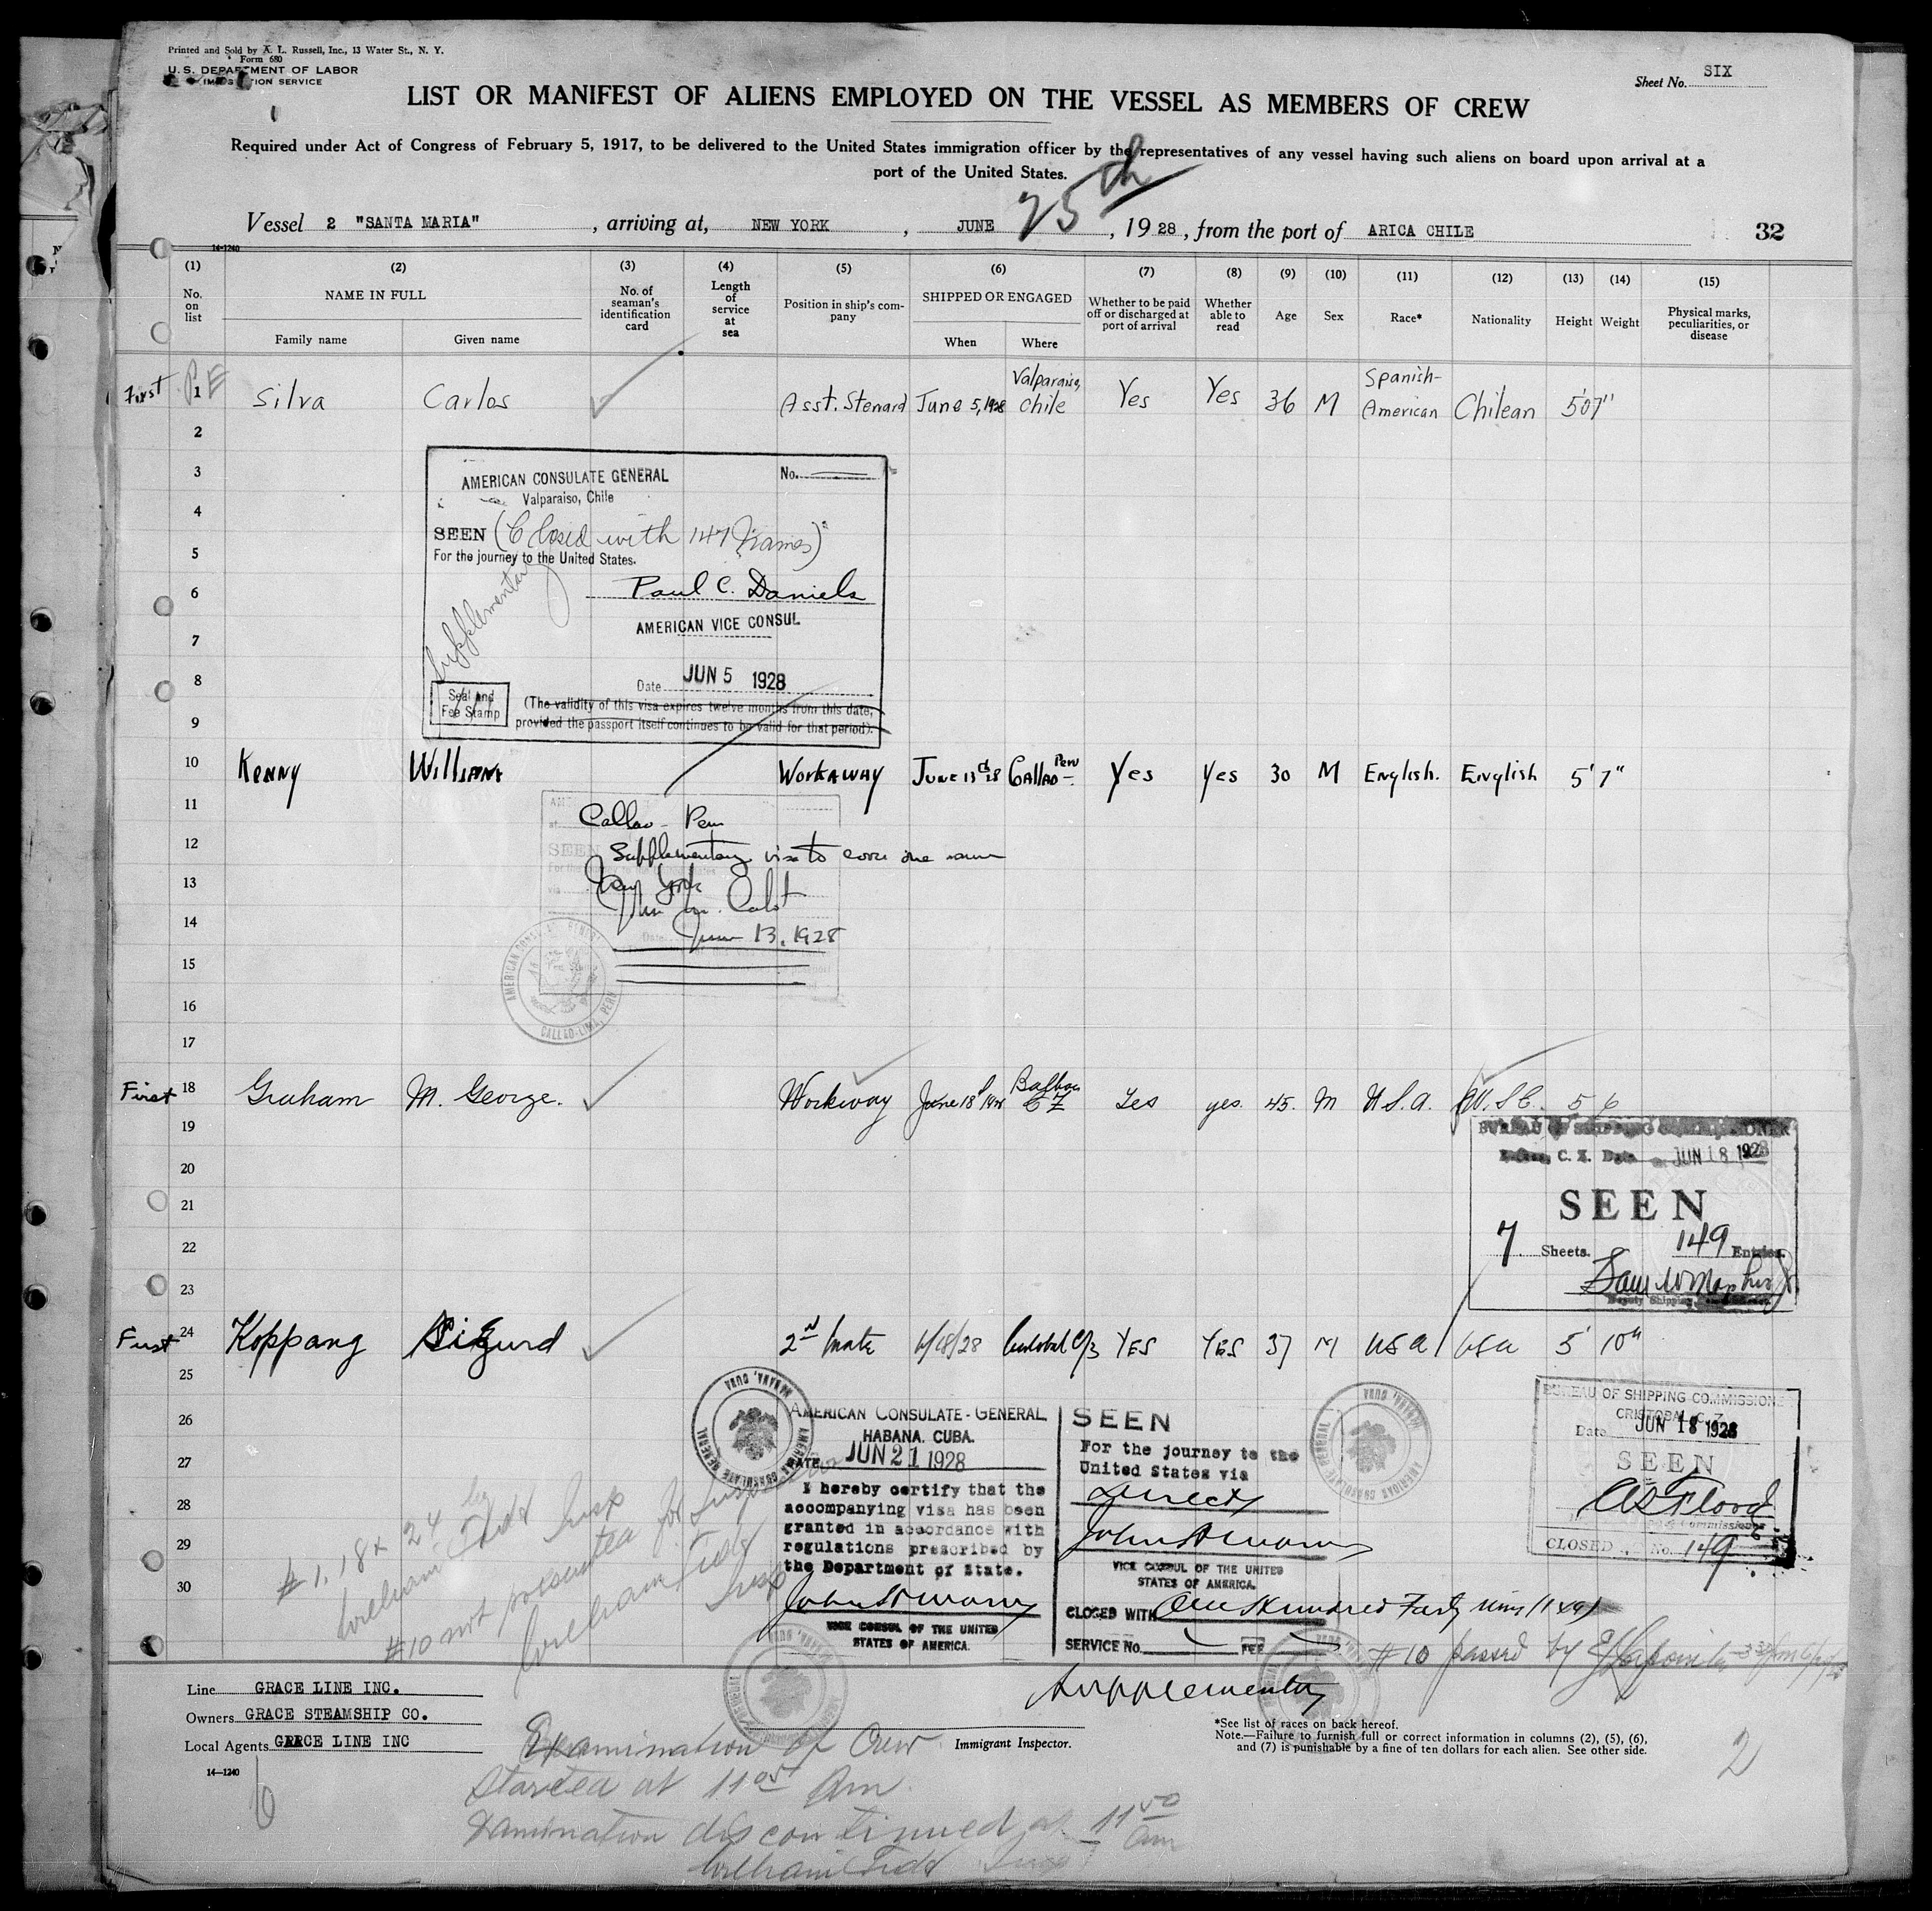 Printed and Sold by A. L. Russell, Inc., 13 Water St., N. Y.
Form 680
U. S. DEPARTMENT OF LABOR
IMMIGRATION SERVICE
Sheet No. SIX
LIST OR MANIFEST OF ALIENS EMPLOYED ON THE VESSEL AS MEMBERS OF CREW
Required under Act of Congress of February 5, 1917, to be delivered to the United States immigration officer by the representatives of any vessel having such aliens on board upon arrival at a
port of the United States.
Vessel 2 "SANTA MARIA", arriving at, NEW YORK, JUNE 25th, 1928, from the port of ARICA CHILE 32
14-1240
(1) No. on list
(2) NAME IN FULL
Family name Given name
(3) No. of seaman's identification card
(4) Length of service at sea
(5) Position in ship's company
(6) SHIPPED OR ENGAGED
When Where
(7) Whether to be paid off or discharged at port of arrival
(8) Whether able to read
(9) Age
(10) Sex
(11) Race*
(12) Nationality
(13) Height
(14) Weight
(15) Physical marks, peculiarities, or disease
First 1 Silva Carlos Asst. Steward June 5, 1928 Valparaiso, Chile Yes Yes 36 M Spanish-American Chilean 5'07"
2
3
4
5
6
7
8
9
AMERICAN CONSULATE GENERAL No.
Valparaiso, Chile
SEEN (Closed with 147 Names)
For the journey to the United States.
Supplementary
Paul C. Daniels
AMERICAN VICE CONSUL
Date JUN 5 1928
Seal and Fee Stamp
(The validity of this visa expires twelve months from this date,
provided the passport itself continues to be valid for that period).
10 Kenny William Workaway June 13th 28 Callao Peru Yes Yes 30 M English. English 5'7"
11
12
13
14
15
16
17
Callao - Peru
Supplementary visa to cover one name
New York
June 13, 1928
SEEN
CALLAO-LIMA, PERU
First 18 Graham M. George. Workway June 18 1928 Balboa C Z Yes yes. 45. M U.S.A. 5 6
19
20
21
22
23
BUREAU OF SHIPPING COMMISSIONER
C. Z. Date JUN 18 1928
SEEN
7 Sheets. 149 Entries.
Deputy Shipping Commissioner
First 24 Koppang Sigurd 2nd Mate 6/18/28 Cristobal C/Z YES YES 37 M USA USA 5' 10"
25
26
27
28
29
30
AMERICAN CONSULATE GENERAL HABANA, CUBA
AMERICAN CONSULATE-GENERAL
HABANA. CUBA.
DATE JUN 21 1928
I hereby certify that the
accompanying visa has been
granted in accordance with
regulations prescribed by
the Department of State.
VICE CONSUL OF THE UNITED
STATES OF AMERICA.
SEEN
For the journey to the
United States via
Direct
VICE CONSUL OF THE UNITED
STATES OF AMERICA.
CLOSED WITH One Hundred Forty nine (149)
SERVICE No. FEE
Supplementary
AMERICAN CONSULATE GENERAL HABANA, CUBA
BUREAU OF SHIPPING COMMISSIONER
CRISTOBAL, C. Z.
Date JUN 18 1928
SEEN
CLOSED No. 149
#1, 18 & 24 by
William Tidd Insp
#10 not presented for Inspection
William Tidd
Insp
#10 passed by
Line GRACE LINE INC.
Owners GRACE STEAMSHIP CO.
Local Agents GRACE LINE INC
14-1240
Immigrant Inspector.
*See list of races on back hereof.
Note.—Failure to furnish full or correct information in columns (2), (5), (6),
and (7) is punishable by a fine of ten dollars for each alien. See other side.
Examination of Crew
Started at 11 05 Am.
Examination discontinued at 11 50 am
William Tidd Insp
6
2